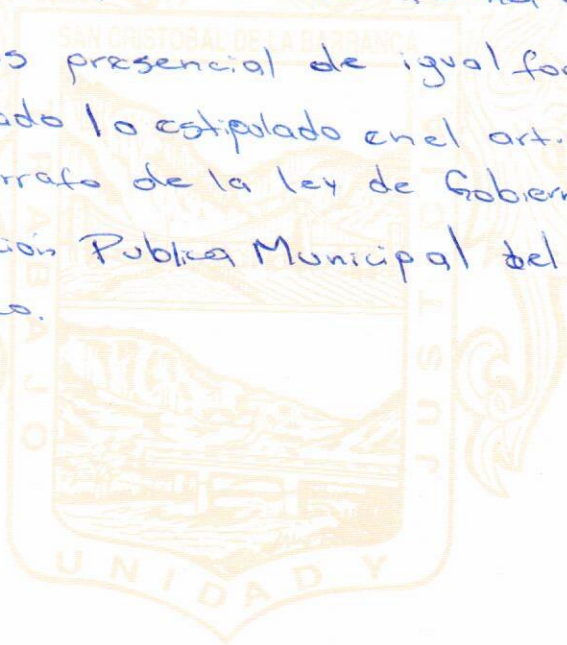 SAN CRISTOBAL DE LA BARRANCA
s presencial de igual for
ado lo estipulado en el art.
rrafo de la ley de Gobier
ión Publica Municipal del
o.
TRABAJO
JUSTICIA
UNIDAD Y